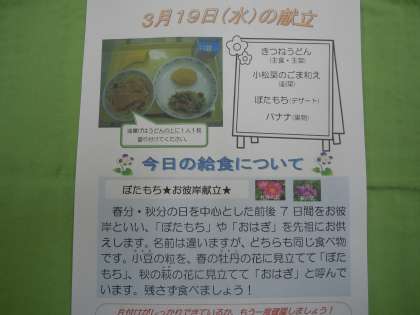 3月19日(水)の献立
きつねうどん
(主食・主菜)
小松菜のごま和え
(副菜)
ぼたもち(デザート)
バナナ(果物)
油揚げはうどんの上に1人1枚
盛り付けてください。
今日の給食について
ぼたもち★お彼岸献立★
春分・秋分の日を中心とした前後7日間をお彼
岸といい、「ぼたもち」や「おはぎ」を先祖にお供
えします。名前は違いますが、どちらも同じ食べ物
です。小豆の粒を、春の牡丹の花に見立てて「ぼた
もち」、秋の萩の花に見立てて「おはぎ」と呼んで
います。残さず食べましょう!